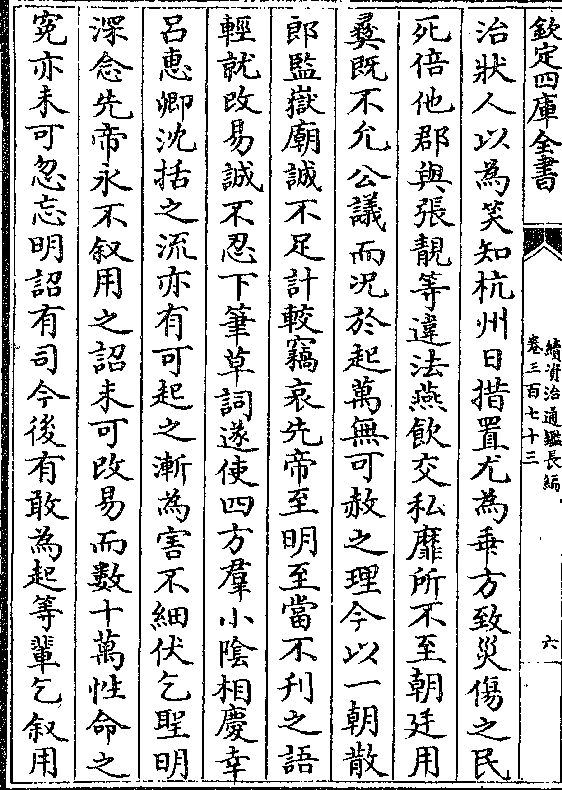 欽定四庫全書
續資治通鑑長編
卷三百七十三
六
治狀人以為笑知杭州日措置尤為乖方致災傷之民
死倍他郡與張靚等違法燕飲交私靡所不至朝廷用
彛既不允公議而况於起萬無可赦之理今以一朝散
郎監嶽廟誠不足計較竊哀先帝至明至當不刋之語
輕就改易誠不忍下筆草詞遂使四方羣小陰相慶幸
呂惠卿沈括之流亦有可起之漸為害不細伏乞聖明
深念先帝永不叙用之詔未可改易而數十萬性命之
寃亦未可忽忘明詔有司今後有敢為起等輩乞叙用